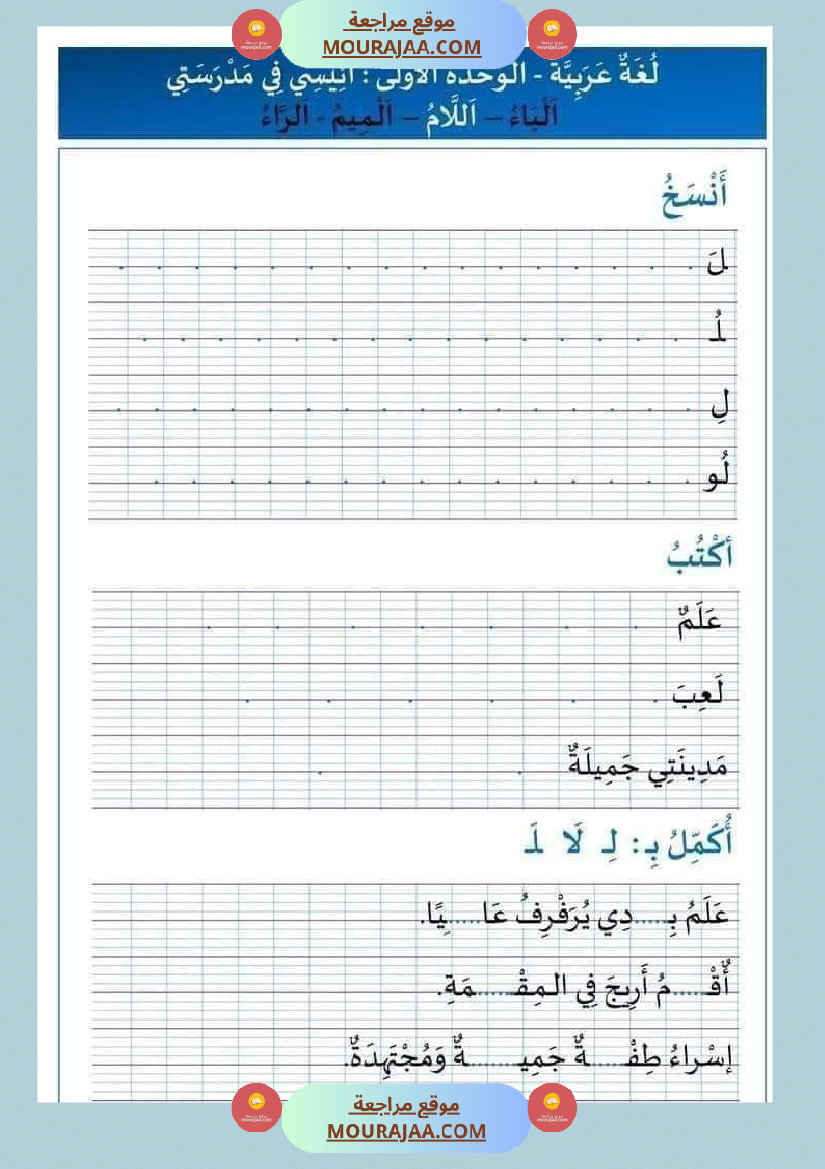 موقع مراجعة
MOURAJAA.COM
لُغَةٌ عَرَبِيَّة - الوحدة الأولى : أَنِيسِي فِي مَدْرَسَتِي
اَلْبَاءُ – اَللَّامُ – اَلْمِيمُ - اَلرَّاءُ
أَنْسَخُ
لَ . . . . . . . . . . . . . . . .
لُـ . . . . . . . . . . . . . . .
لِ . . . . . . . . . . . . . . . .
لُو . . . . . . . . . . . . . . .
أَكْتُبُ
عَلَمٌ . . . . . . .
لَعِبَ . . . . . .
مَدِينَتِي جَمِيلَةٌ . .
أُكَمِّلُ بِـ: لِـ لَا لَـ
عَلَمُ بِـ.....دِي يُرَفْرِفُ عَا.....يًا.
أَقْـ.....مُ أَرِيجَ فِي المِقْـ.....مَةِ.
إسْراءُ طِفْـ.....ةٌ جَمِيـ.......ةٌ وَمُجْتَهِدَةٌ.
موقع مراجعة
MOURAJAA.COM